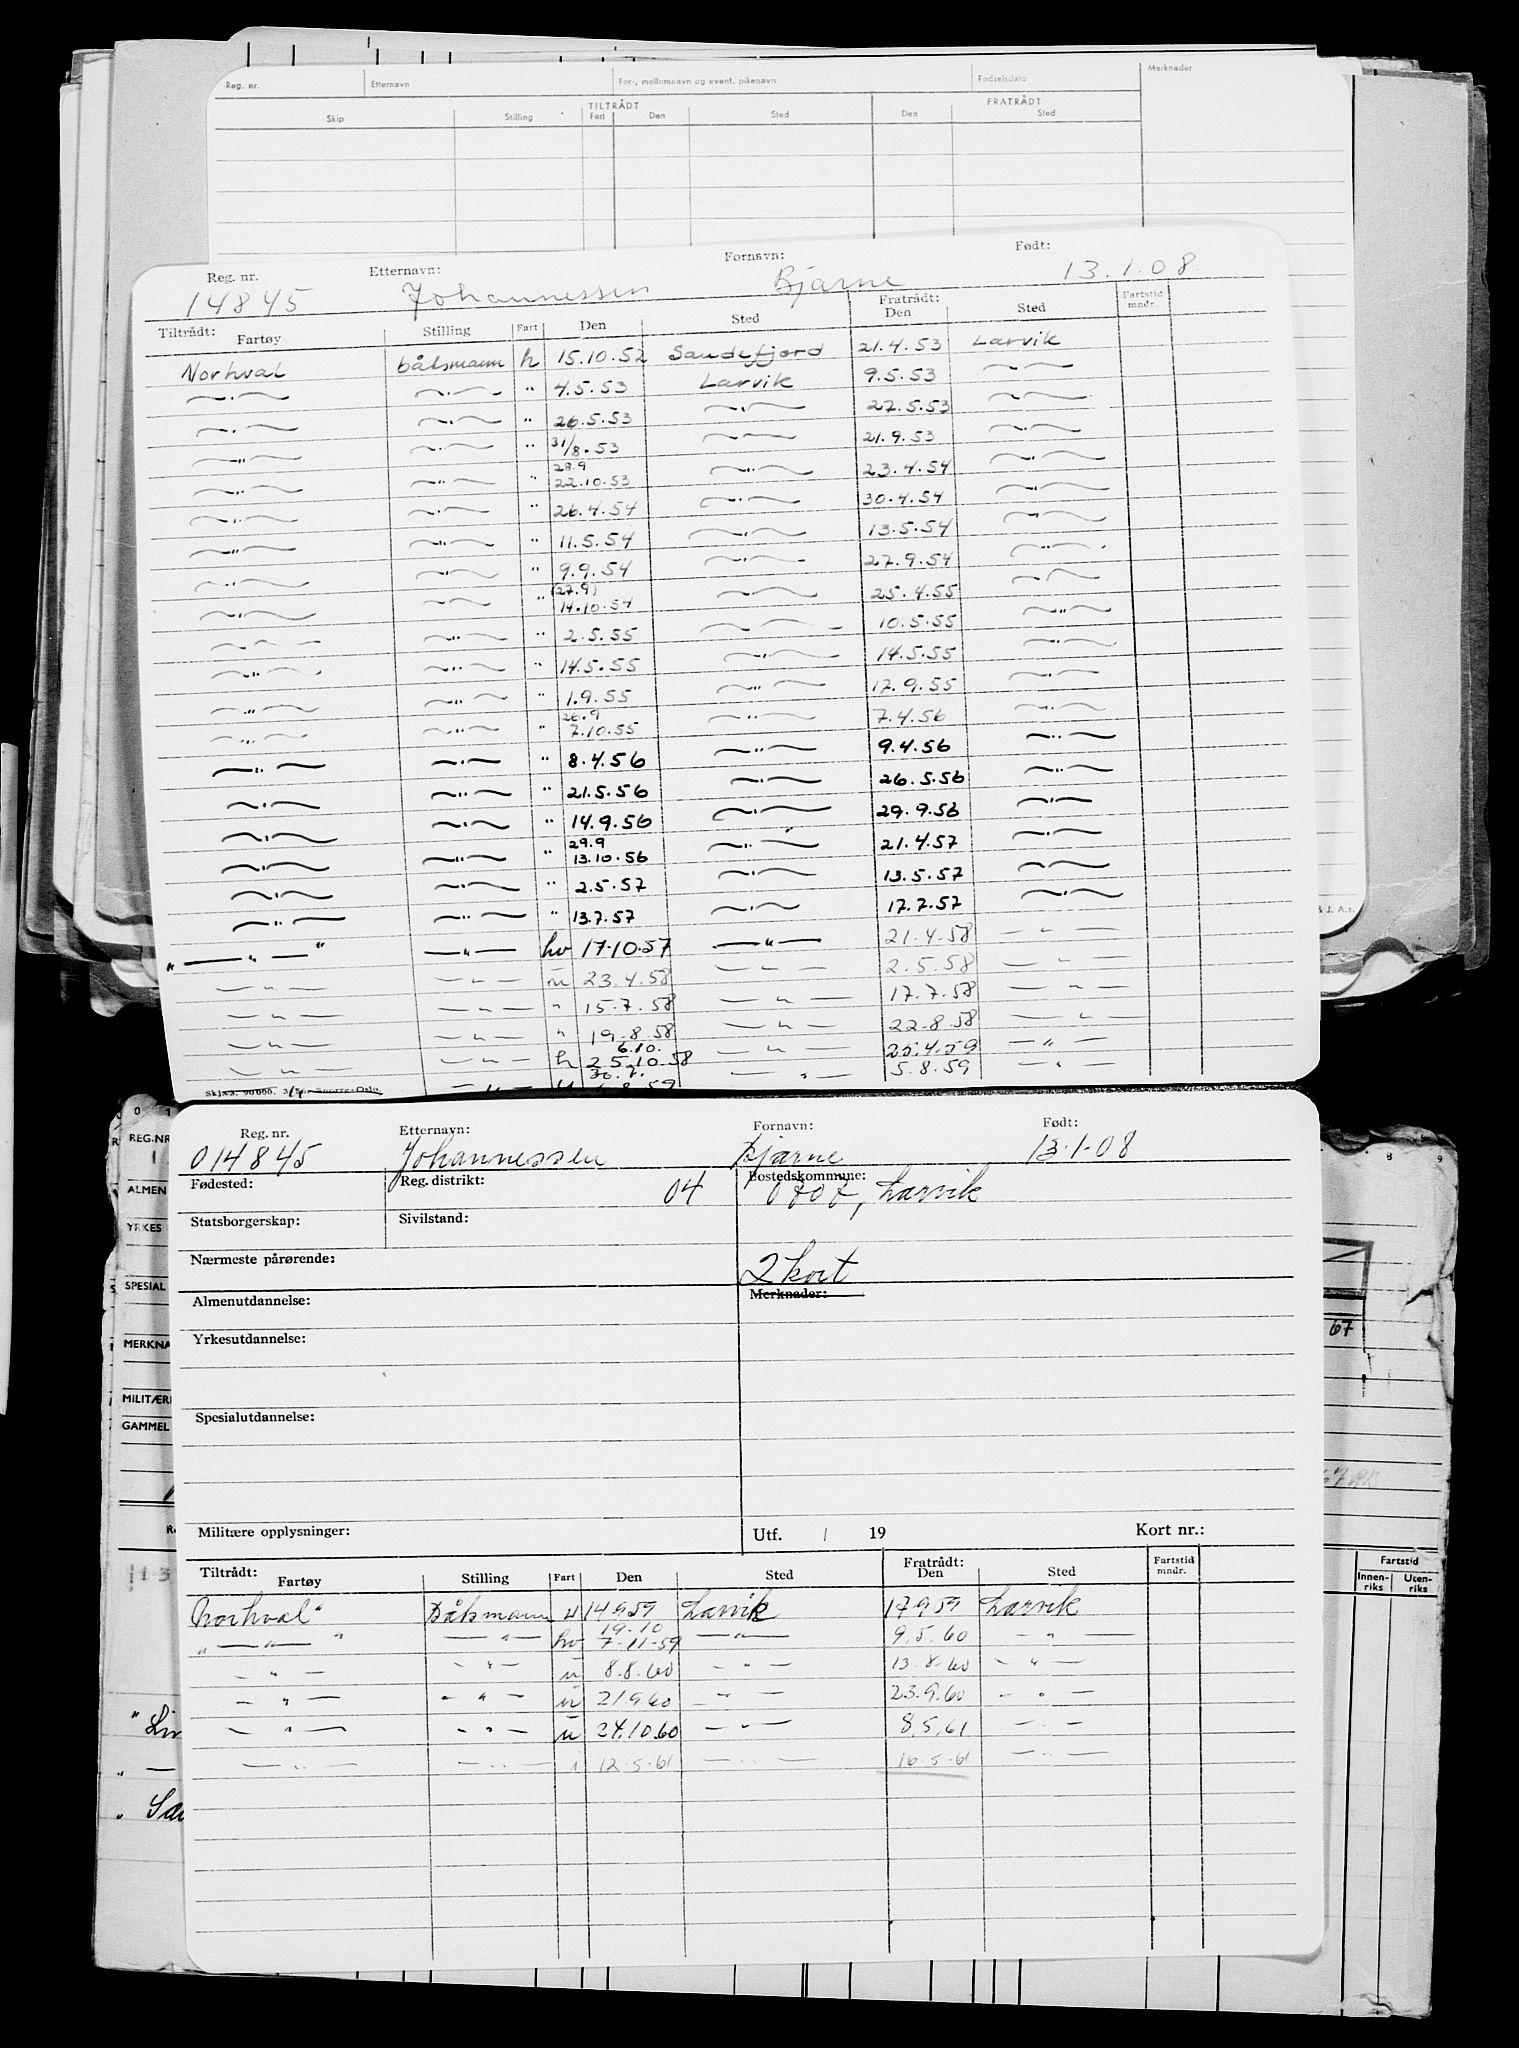 Reg. nr. Etternavn For-, mellomnavn og event. pikenavn Fødselsdato Merknader
TILTRÅDT FRATRÅDT
Skip Stilling Fart Den Sted Den Sted
Reg. nr. Etternavn: Fornavn: Født:
14845 Johannessen Bjarne 13.1.08.
Tiltrådt: Fratrådt:
Fartøy Stilling Fart Den Sted Den Sted Fartstid mndr.
Norhval båtsmann h 15.10.52 Sandefjord 21.4.53 Larvik
—·— —·— " 4.5.53 Larvik 9.5.53 —·—
—·— —·— " 26.5.53 —·— 27.5.53 —·—
—"— —·— " 31/8.53 —— 21.9.53 —·—
28.9
—"— —"— " 22.10.53 —"— 23.4.54 —"—
—·— —·— " 26.4.54 —·— 30.4.54 —·—
—"— —"— " 11.5.54 —·— 13.5.54 —"—
—"— —·— " 9.9.54 —·— 27.9.54 —"—
(27.9)
—"— —— " 14.10.54 —·— 25.4.55 —·—
—·— —"— " 2.5.55 —·— 10.5.55 —"—
—"— —"— " 14.5.55 —·— 14.5.55 —·—
—"— —"— " 1.9.55 —"— 17.9.55 —·—
26.9
—"— —"— " 7.10.55 —"— 7.4.56 —·—
—"— —·— " 8.4.56 —"— 9.4.56 —"—
—·— —"— " 21.5.56 —·— 26.5.56 —"—
—·— —·— " 14.9.56 —·— 29.9.56 —·—
29.9
—·— —"— " 13.10.56 —"— 21.4.57 —·—
—·— —·— " 2.5.57 —·— 13.5.57 —·—
—"— —"— " 13.7.57 —·— 17.7.57 —·—
" —"— " —"— hv 17.10.57 —"— 21.4.58 —"—
—"— —"— u 23.4.58 —"— 2.5.58 —"—
—"— —"— " 15.7.58 —"— 17.7.58 —"—
—"— —"— " 19.8.58 —"— 22.8.58 —"—
6.10.
—"— —"— h 25.10.58 —"— 25.4.59 —"—
—"— u 8.59 —"— 5.8.59 —"—
& J. A.s.
REG.NR
ALMEN
YRKES
SPESIAL
MERKNA
MILITÆR
GAMMEL
67
Fartstid
Innenriks Utenriks
" Lin
" —
" San
Reg. nr. Etternavn: Fornavn: Født:
014845 Johannessen Bjarne 13.1.08
Fødested: Reg. distrikt: 04 Bostedskommune: 0707, Larvik
Statsborgerskap: Sivilstand:
Nærmeste pårørende: 2 kort
Almenutdannelse: Merknader:
Yrkesutdannelse:
Spesialutdannelse:
Militære opplysninger: Utf. / 19 Kort nr.:
Tiltrådt: Fratrådt:
Fartøy Stilling Fart Den Sted Den Sted Fartstid mndr.
Norhval" Båtsmann u 14.9.59 Larvik 17.9.59 Larvik
19.10
" —"— " —"— hv 7-11-59 —"— 9.5.60 —"—
—"— —"— u 8.8.60 —"— 13.8.60 —"—
—"— —"— u 21.9.60 —"— 23.9.60 —"—
—"— —"— u 24.10.60 —"— 8.5.61 —"—
—"— —"— i 12.5.61 —"— 16.5.61 —"—